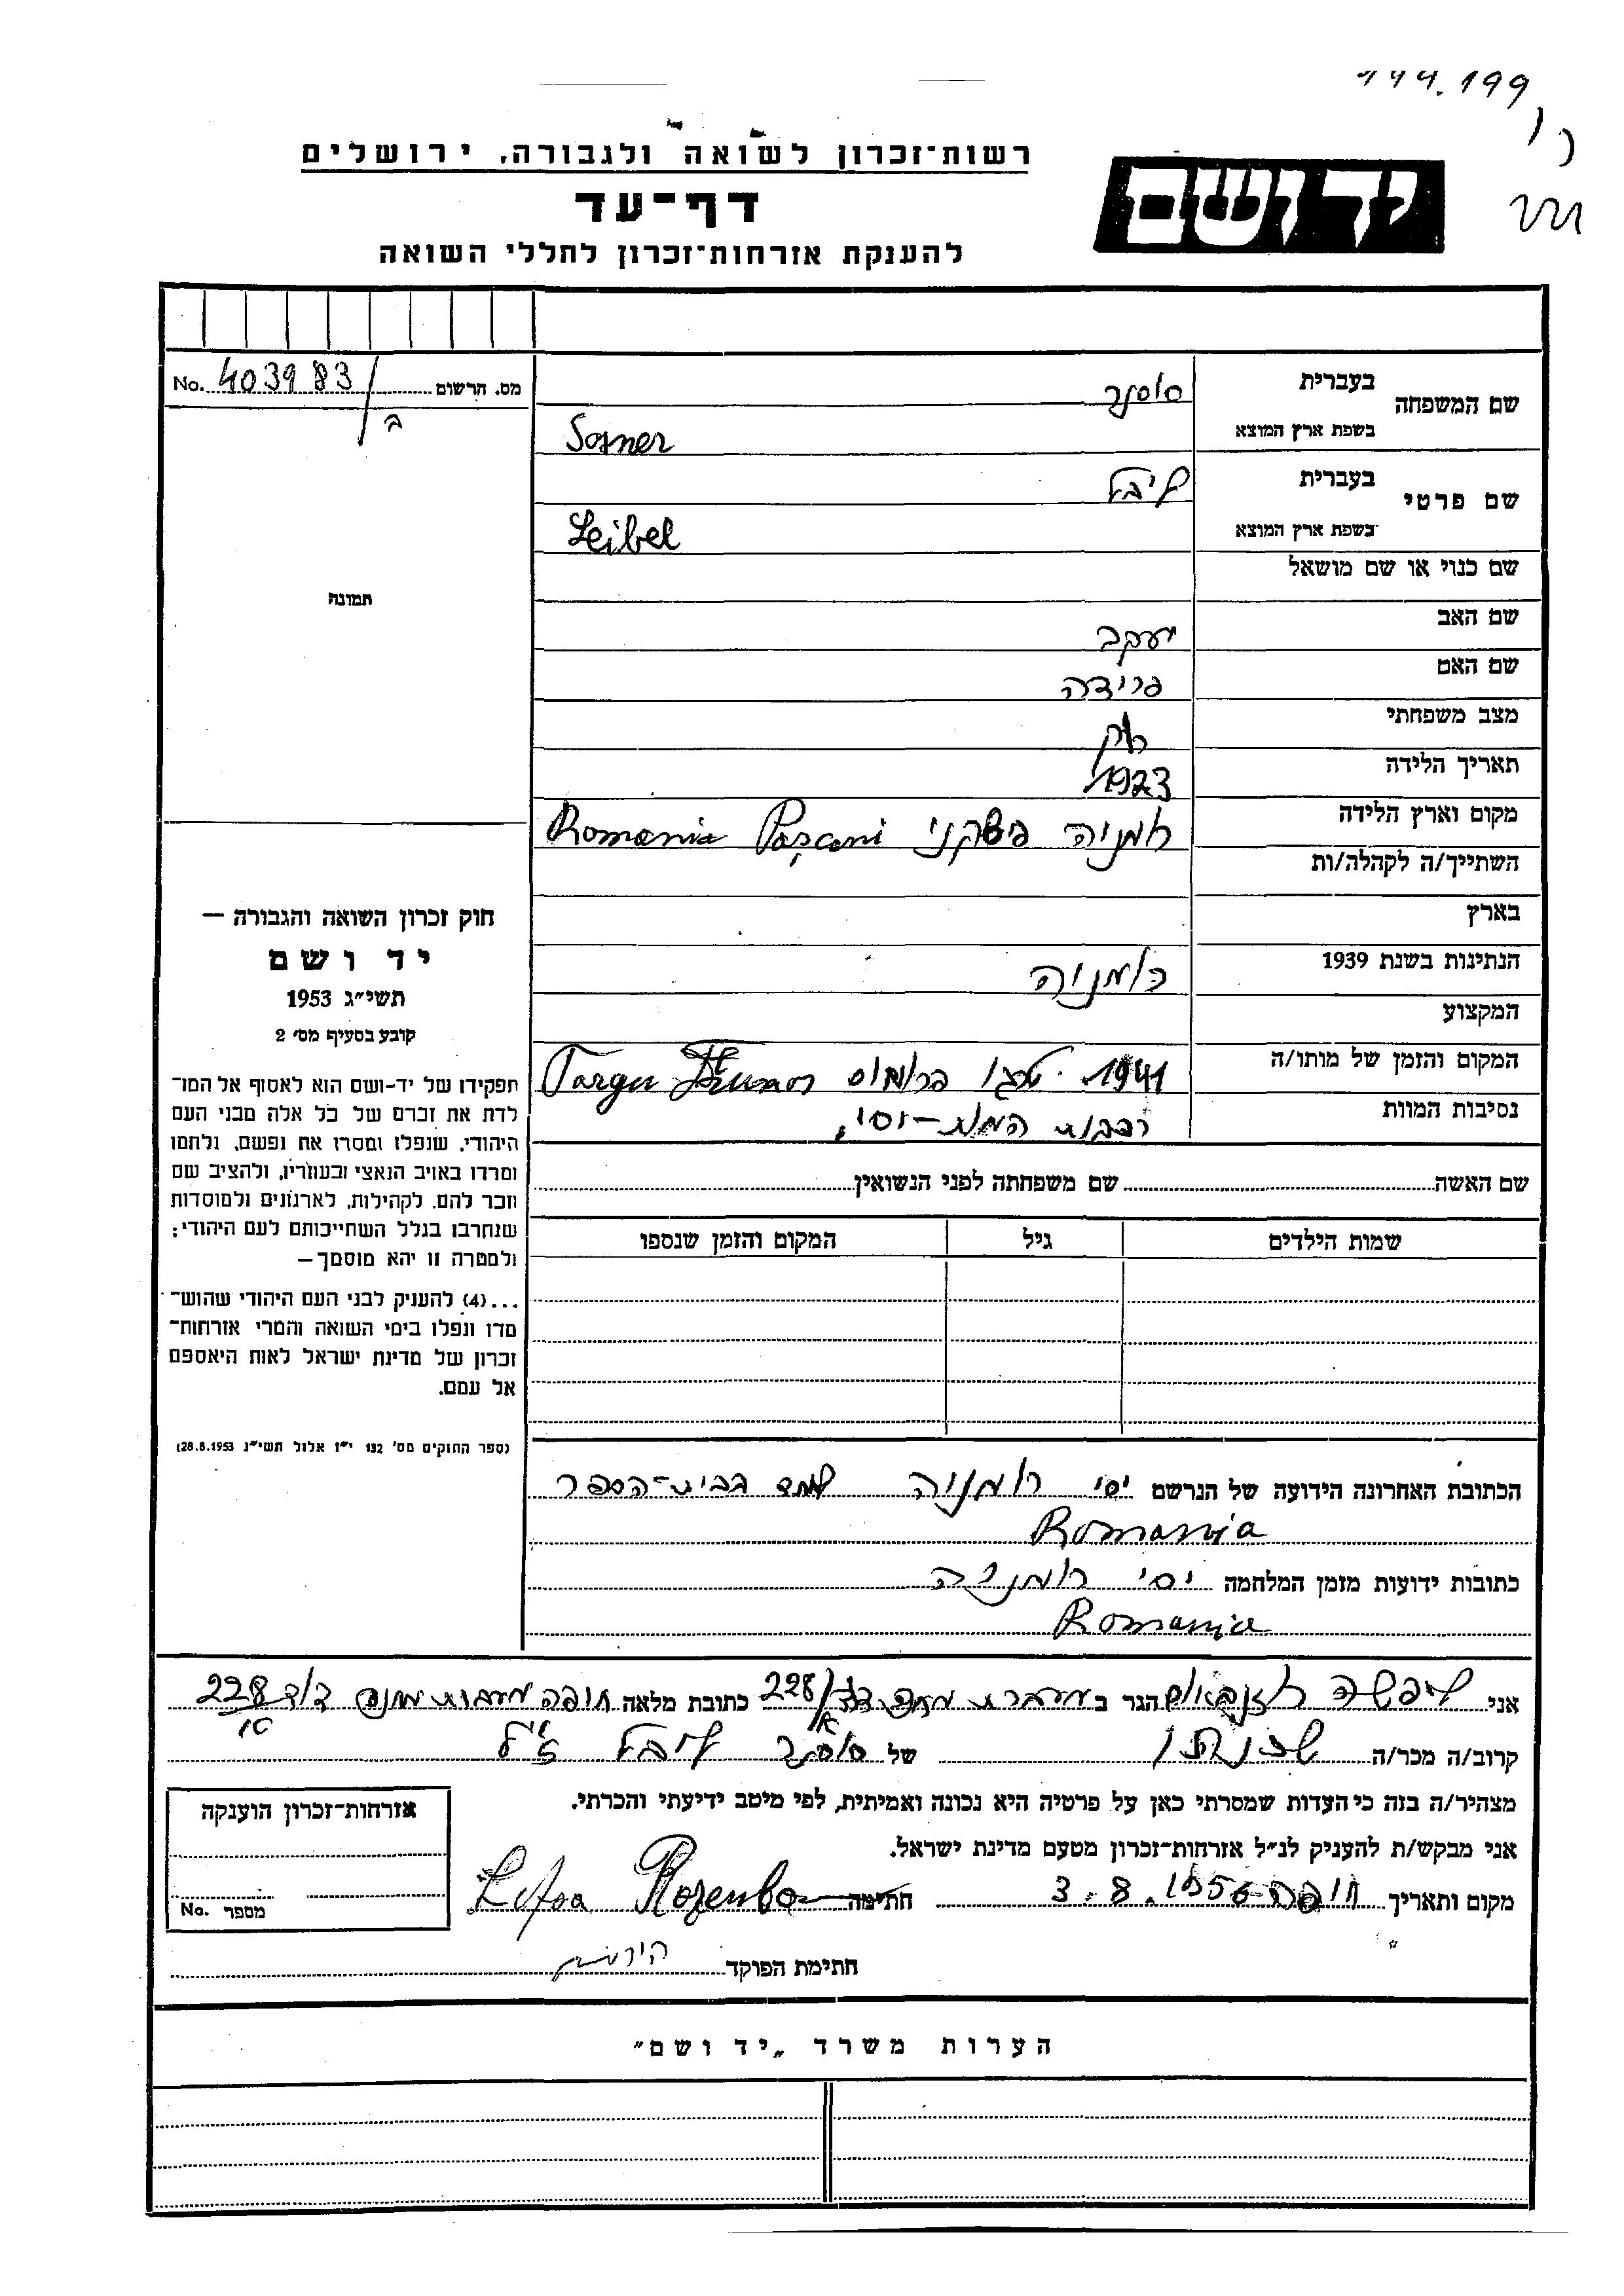 199.199
רשות־זכרון לשואה ולגבורה, ירושלים
דף־עד
להענקת אזרחות־זכרון לחללי השואה
יד ושם
שם המשפחה בעברית סוסנר
בשפת ארץ המוצא Sosner
שם פרטי בעברית ליבל
בשפת ארץ המוצא Leibel
שם כנוי או שם מושאל
שם האב יעקב
שם האם פרידה
מצב משפחתי רוק
תאריך הלידה 1923
מקום וארץ הלידה רומניה פשקני Romania Pașcani
השתייך/ה לקהלה/ות
בארץ
הנתינות בשנת 1939 רומניה
המקצוע
המקום והזמן של מותו/ה 1941 טרגו פרומוס Targu Frumos
נסיבות המוות רכבות המות-יסי
שם האשה שם משפחתה לפני הנשואין
שמות הילדים גיל המקום והזמן שנספו
הכתובת האחרונה הידועה של הנרשם יסי רומניה למד בבית-הספר
Romania
כתובות ידועות מזמן המלחמה יסי רומניה
Romania
מס. הרשום 403983 No.
ב
תמונה
חוק זכרון השואה והגבורה –
יד ושם
תשי״ג 1953
קובע בסעיף מס׳ 2
תפקידו של יד-ושם הוא לאסוף אל המו־
לדת את זכרם של כל אלה מבני העם
היהודי, שנפלו ומסרו את נפשם, נלחמו
ומרדו באויב הנאצי ובעוזריו, ולהציב שם
וזכר להם, לקהילות, לארגונים ולמוסדות
שנחרבו בגלל השתייכותם לעם היהודי;
ולמטרה זו יהא מוסמך –
...(4) להעניק לבני העם היהודי שהוש־
מדו ונפלו בימי השואה והמרי אזרחות־
זכרון של מדינת ישראל לאות היאספם
אל עמם.
(ספר החוקים מס׳ 132 י״ז אלול תשי״ג 28.8.1953)
אני ליפשה רוזנבאום הגר ב מעברת מחנה דוד 228 כתובת מלאה חיפה מעברת מחנה דוד 228
קרוב/ה מכר/ה שכנתו של סוסנר ליבל ז״ל
מצהיר/ה בזה כי העדות שמסרתי כאן על פרטיה היא נכונה ואמיתית, לפי מיטב ידיעתי והכרתי.
אני מבקש/ת להעניק לנ״ל אזרחות־זכרון מטעם מדינת ישראל.
מקום ותאריך חיפה 3.8.1956 חתימה Rozenba
חתימת הפוקד
אזרחות־זכרון הוענקה
מספר No.
הערות משרד „יד ושם״